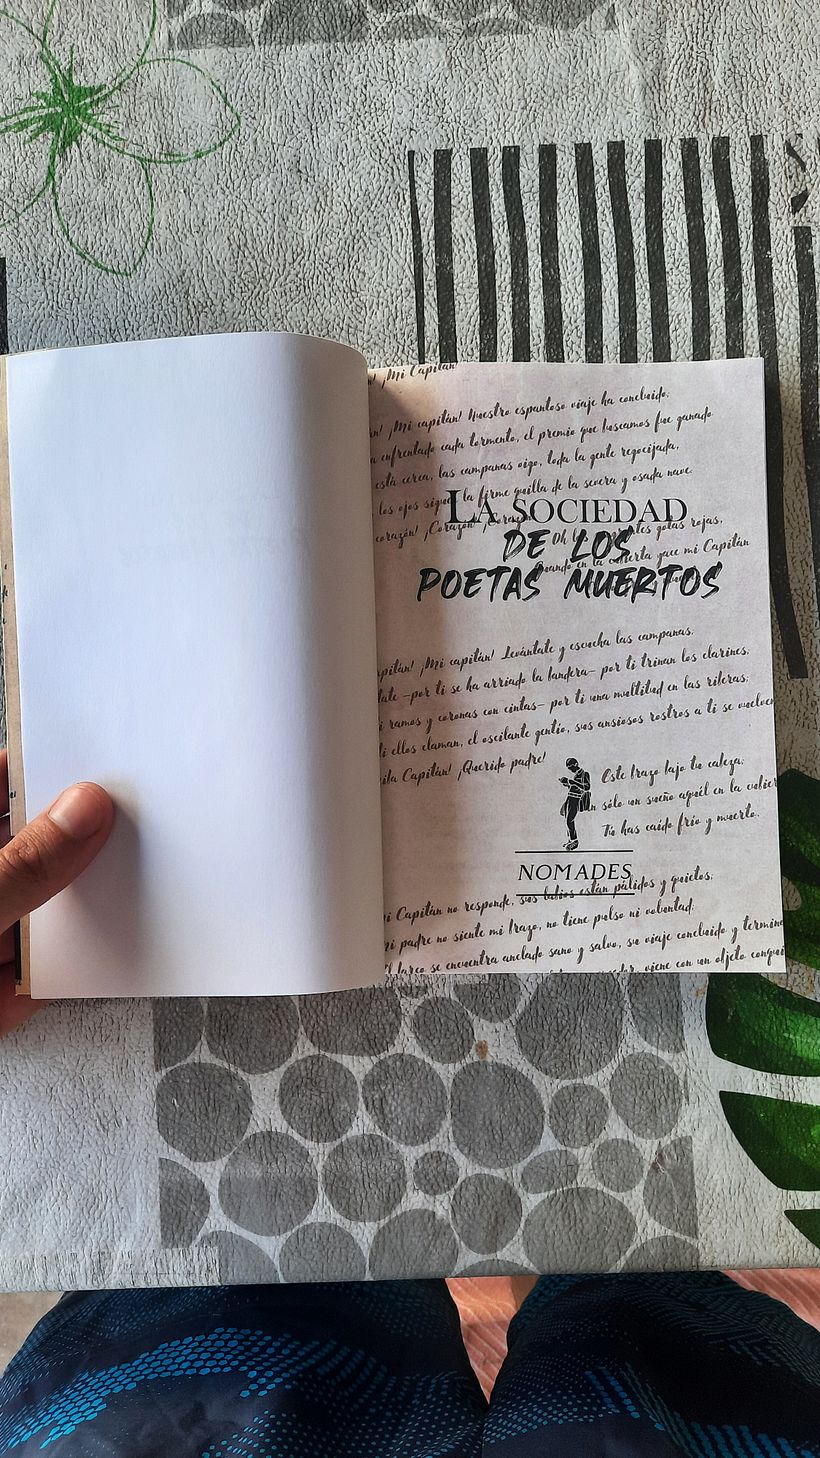 ¡Mi Capitán!
¡Mi capitán! Nuestro espantoso viaje ha concluido;
enfrentado cada tormento, el premio que buscamos fue ganado
está cerca, las campanas oigo, toda la gente regocijada,
los ojos siguen la firme quilla de la severa y osada nave.
LA SOCIEDAD
corazón! ¡Corazón! ¡Corazón!
gotas rojas,
DE LOS
Cuando en la cubierta yace mi Capitán
POETAS MUERTOS
¡Mi capitán! Levántate y escucha las campanas.
–por ti se ha arriado la bandera– por ti trinan los clarines.
ramos y coronas con cintas– por ti una multitud en las riberas;
ti ellos claman, el oscilante gentío, sus ansiosos rostros a ti se vuelven
Capitán! ¡Querido padre!
Este brazo bajo tu cabeza;
sólo un sueño aquél en la
Tú has caído frío y muerto.
NOMADES
mi Capitán no responde, sus labios están pálidos y quietos;
mi padre no siente mi brazo, no tiene pulso ni voluntad.
barco se encuentra anclado sano y salvo, su viaje concluido y
viene con un objeto